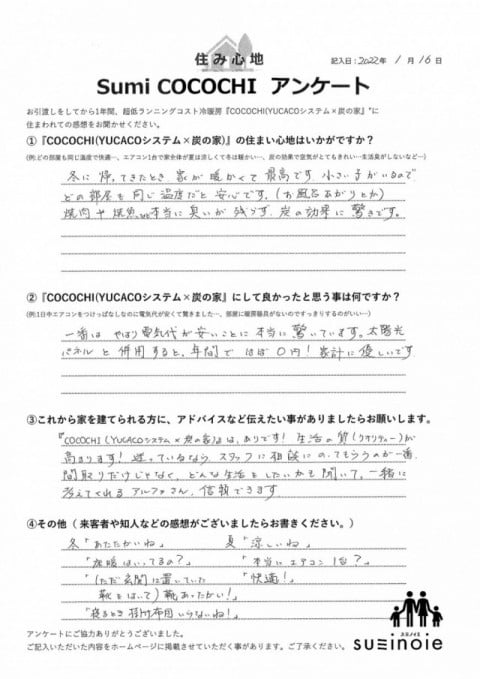 住み心地
記入日：2022年 1月 16日
Sumi COCOCHI アンケート
お引渡しをしてから1年間、超低ランニングコスト冷暖房『COCOCHI(YUCACOシステム×炭の家』"に
住まわれての感想をお聞かせください。
①『COCOCHI(YUCACOシステム×炭の家)』の住まい心地はいかがですか？
(例:どの部屋も同じ温度で快適…、エアコン1台で家全体が夏は涼しくて冬は暖かい…、炭の効果で空気がとてもきれい…生活臭がしないなど…)
冬に帰ってきたとき 家が暖かくて最高です。小さい子がいるので
どの部屋も同じ温度だと安心です。(お風呂あがりとか)
焼肉や焼魚 本当に臭いが残らず、炭の効果に驚きです。
②『COCOCHI(YUCACOシステム×炭の家』にして良かったと思う事は何ですか？
(例)1日中エアコンをつけっぱなしなのに電気代が安くて驚きました…、部屋に暖房器具がないのですっきりするのがいい…)
一番は やはり電気代が安いことに本当に驚いています。太陽光
パネルと併用すると、年間でほぼ0円！家計に優しいです
③これから家を建てられる方に、アドバイスなど伝えたい事がありましたらお願いします。
『COCOCHI(YUCACOシステム×炭の家)』は、ありです！生活の質(クオリティー)が
高まります！迷っているなら、スタッフに相談にのってもらうのが一番。
間取りだけじゃなく、どんな生活をしたいかを聞いて、一緒に
考えてくれるアルファさん、信頼できます
④その他（来客者や知人などの感想がございましたらお書きください。）
冬「あたたかいね」 夏「涼しいね」
「加暖はいってるの？」 「本当にエアコン1台？」
「(ただ玄関に置いていた 「快適！」
靴をはいて)靴あったかい！」
「寝るとき掛け布団いらないね！」
アンケートにご協力ありがとうございました。
ご記入いただいた内容をホームページに掲載させていただく事があります。ご了承ください。
スミノイエ
SUMINOIE